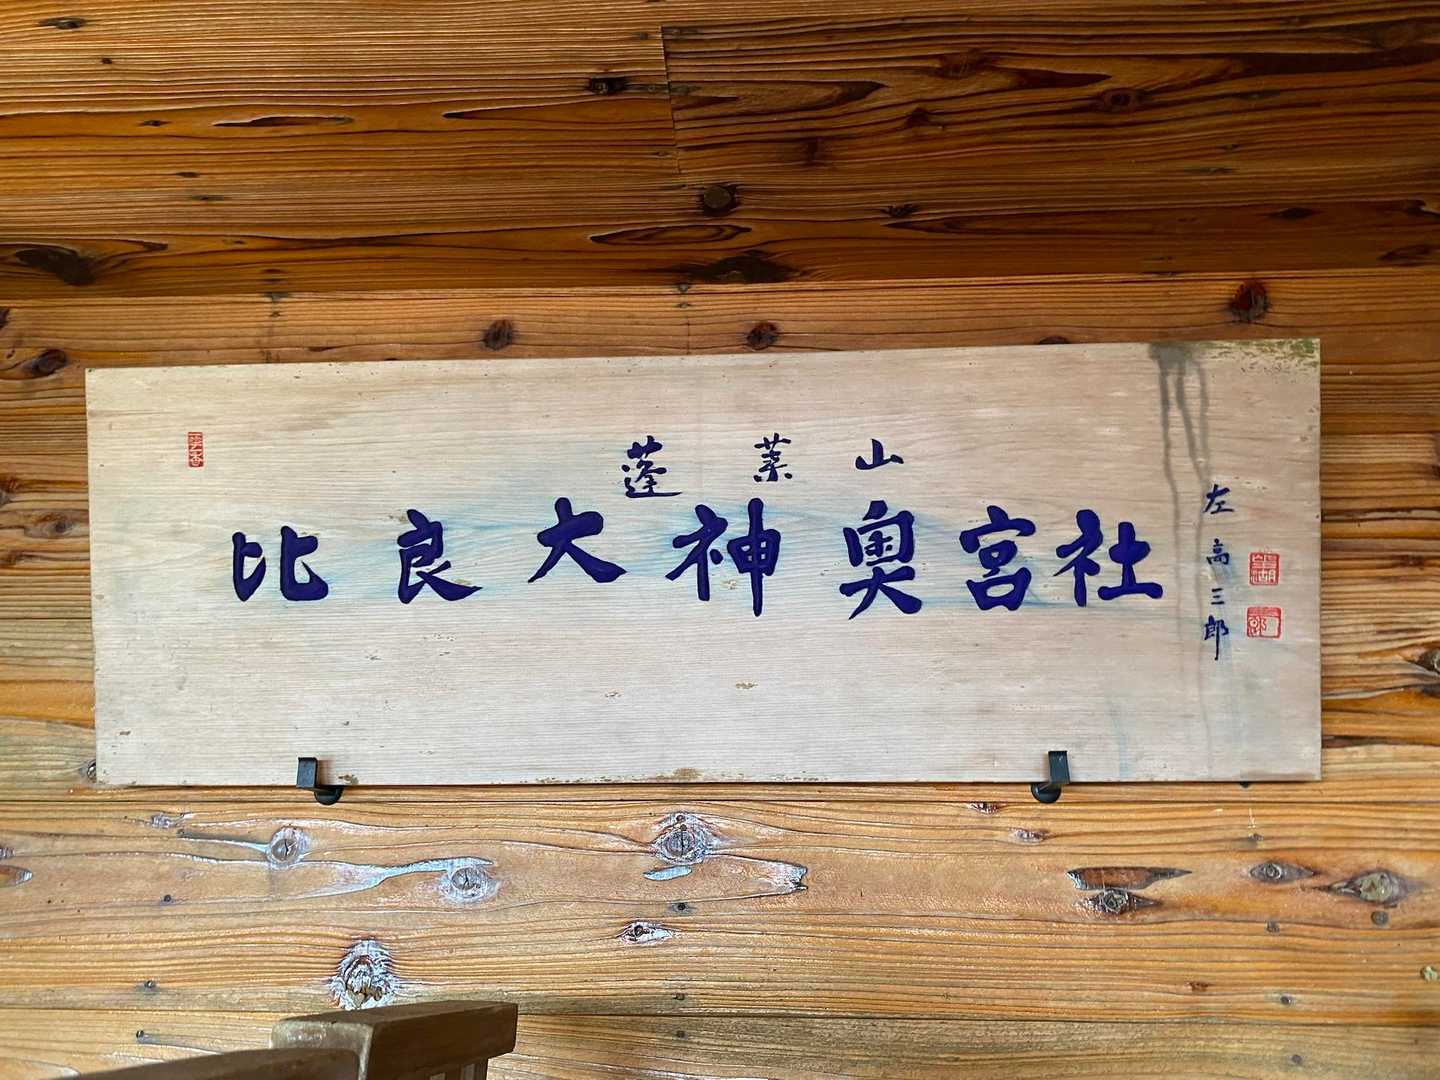 蓬莱山
比良大神奥宮社
左高三郎